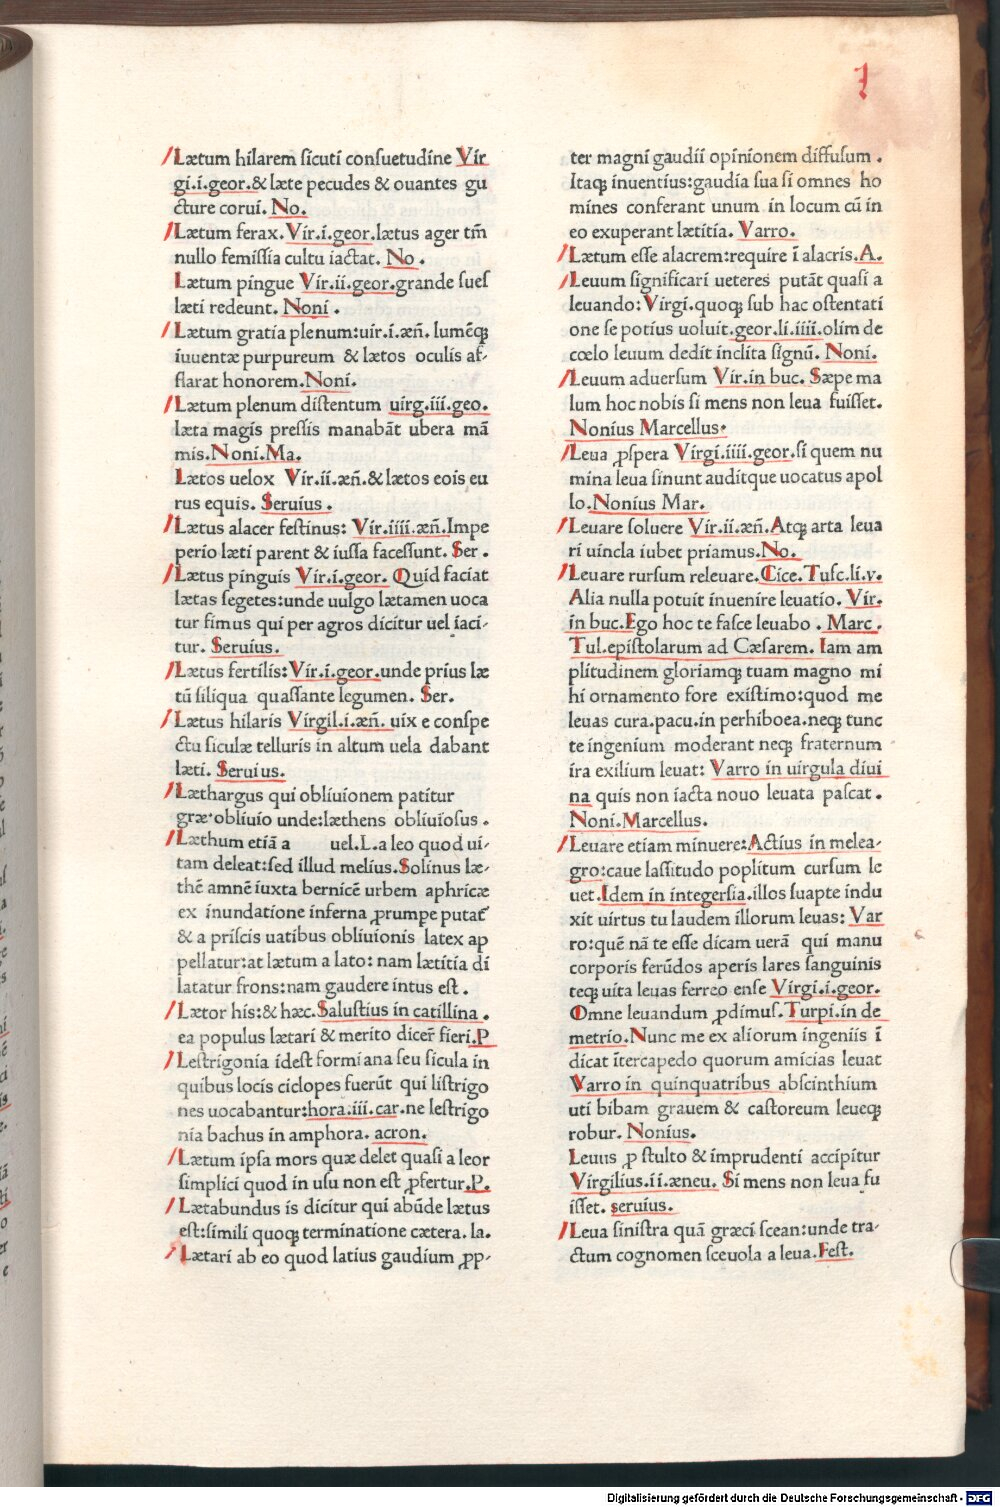 1
Lætum hilarem ſicuti conſuetudine Vir
gi.i.geor.& læte pecudes & ouantes gu
cture corui. No.
Lætum ferax. Vir.i.geor.lætus ager tm̄
nullo femiſſia cultu iactat. No.
Lætum pingue Vir.ii.geor.grande ſueſ
læti redeunt. Noni.
Lætum gratia plenum:uir.i.æn̄. lumēꝙ
iuuentæ purpureum & lætos oculis af-
flarat honorem.Noni.
Lætum plenum diſtentum uirg.iii.geo.
læta magis preſſis manabāt ubera mā
mis.Noni.Ma.
Lætos uelox Vir.ii.æn̄.& lætos eois eu
rus equis. Seruius.
Lætus alacer feſtinus: Vir.iiii.æn̄.Impe
perio læti parent & iuſſa faceſſunt. Ser.
Lætus pinguis Vir.i.geor. Quid faciat
lætas ſegetes:unde uulgo lætamen uoca
tur fimus qui per agros dicitur uel iaci-
tur. Seruius.
Lætus fertilis: Vir.i.geor.unde prius læ
tū ſiliqua quaſſante legumen. Ser.
Lætus hilaris Virgil.i.æn̄. uix e conſpe
ctu ſiculæ telluris in altum uela dabant
læti. Seruius.
Læthargus qui obliuionem patitur
græ·obliuio unde:læthens obliuioſus.
Læthum etiā a uel.L.a leo quod ui-
tam deleat:ſed illud melius.Solinus læ-
thē amnē iuxta bernicē urbem aphricæ
ex inundatione inferna ꝓrumpe putat̄
& a priſcis uatibus obliuionis latex ap
pellatur:at lætum a lato: nam lætitia di
latatur frons:nam gaudere intus eſt.
Lætor his:& hæc.Saluſtius in catillina.
ea populus lætari & merito dicer̄ fieri.P
Leſtrigonia ideſt formiana ſeu ſicula in
quibus locis ciclopes fuerūt qui liſtrigo
nes uocabantur:hora:iii.car.ne leſtrigo
nia bachus in amphora. acron.
Lætum ipſa mors quæ delet quaſi a leor
ſimplici quod in uſu non eſt ꝓfertur.P.
Lætabundus is dicitur qui abūde lætus
eſt:ſimili quoꝙ terminatione cætera. la.
Lætari ab eo quod latius gaudium ꝓp-
ter magni gaudii opinionem diffuſum.
Itaꝙ inuentius:gaudia ſua ſi omnes ho
mines conferant unum in locum cū in
eo exuperant lætitia. Varro.
Lætum eſſe alacrem:require ī alacris.A.
Leuum ſignificari ueteres putāt quaſi a
leuando: Virgi.quoꝙ ſub hac oſtentati
one ſe potius uoluit.geor.li.iiii.olim de
cœlo leuum dedit inclita ſignū. Noni.
Leuum aduerſum Vir.in buc. Sæpe ma
lum hoc nobis ſi mens non leua fuiſſet.
Nonius Marcellus·
Leua ꝓſpera Virgi.iiii.geor.ſi quem nu
mina leua ſinunt auditque uocatus apol
lo.Nonius Mar.
Leuare ſoluere Vir.ii.æn̄.Atꝙ arta leua
ri uincla iubet priamus.No.
Leuare rurſum releuare.Cice.Tuſc.li.v.
Alia nulla potuit inuenire leuatio. Vir.
in buc.Ego hoc te faſce leuabo. Marc.
Tul.epiſtolarum ad Cæſarem. Iam am
plitudinem gloriamꝙ tuam magno mi
hi ornamento fore exiſtimo:quod me
leuas cura.pacu.in perhiboea.neꝙ tunc
te ingenium moderant neꝙ fraternum
ira exilium leuat: Varro in uirgula diui
na quis non iacta nouo leuata paſcat.
Noni.Marcellus.
Leuare etiam minuere:Actius in melea-
gro:caue laſſitudo poplitum curſum le
uet.Idem in integerſia.illos ſuapte indu
xit uirtus tu laudem illorum leuas: Var
ro:quē nā te eſſe dicam uerā qui manu
corporis ferūdos aperis lares ſanguinis
teꝙ uita leuas ferreo enſe Virgi.i.geor.
Omne leuandum ꝓdimuſ.Turpi.in de
metrio.Nunc me ex aliorum ingeniis ī
dicat ītercapedo quorum amicias leuat
Varro in quinquatribus abſcinthium
uti bibam grauem & caſtoreum leueꝙ
robur. Nonius.
Leuus ꝓ ſtulto & imprudenti accipitur
Virgilius.ii.æneu. Si mens non leua fu
iſſet. seruius.
Leua ſiniſtra quā græci ſcean:unde tra-
ctum cognomen ſceuola a leua.Feſt.
Digitalisierung gefördert durch die Deutsche Forschungsgemeinschaft - DFG